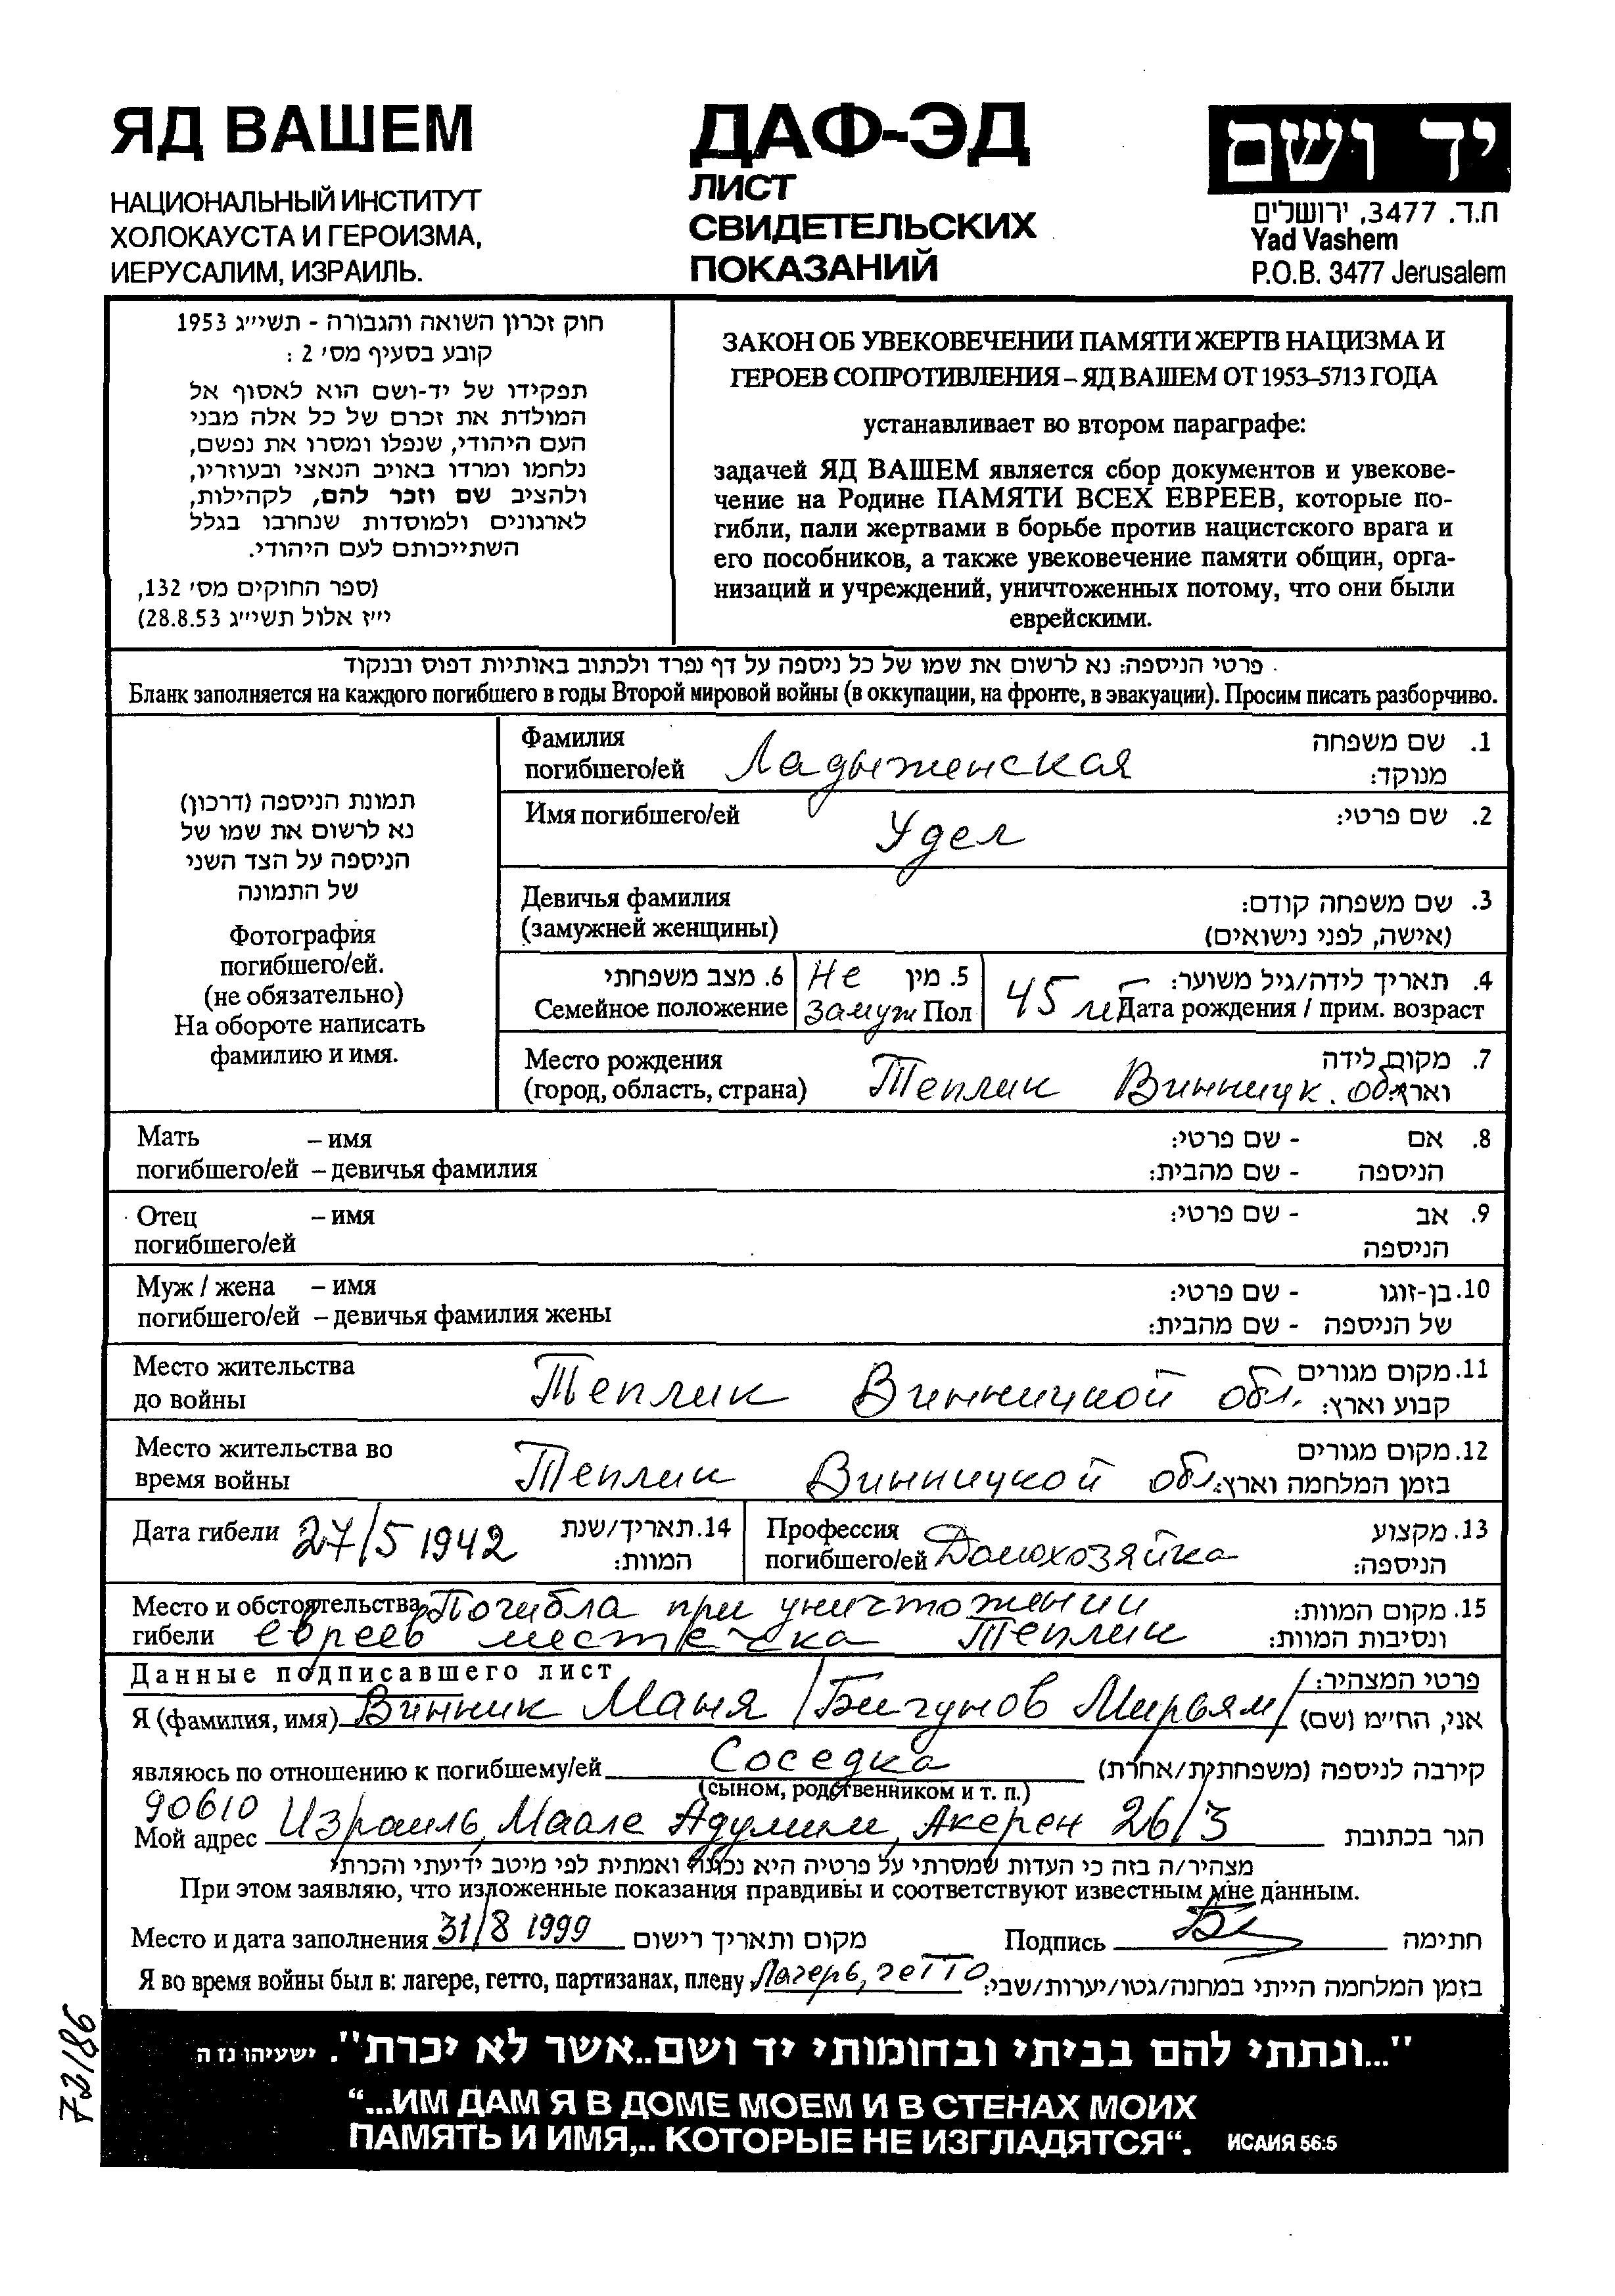 ЯД ВАШЕМ
НАЦИОНАЛЬНЫЙ ИНСТИТУТ
ХОЛОКАУСТА И ГЕРОИЗМА,
ИЕРУСАЛИМ, ИЗРАИЛЬ.
ДАФ-ЭД
ЛИСТ
СВИДЕТЕЛЬСКИХ
ПОКАЗАНИЙ
יד ושם
ת.ד. 3477, ירושלים
Yad Vashem
P.O.B. 3477 Jerusalem
חוק זכרון השואה והגבורה - תשי״ג 1953
קובע בסעיף מס׳ 2 :
תפקידו של יד-ושם הוא לאסוף אל
המולדת את זכרם של כל אלה מבני
העם היהודי, שנפלו ומסרו את נפשם,
נלחמו ומרדו באויב הנאצי ובעוזריו,
ולהציב שם וזכר להם, לקהילות,
לארגונים ולמוסדות שנחרבו בגלל
השתייכותם לעם היהודי.
(ספר החוקים מס׳ 132,
י״ז אלול תשי״ג 28.8.53)
ЗАКОН ОБ УВЕКОВЕЧЕНИИ ПАМЯТИ ЖЕРТВ НАЦИЗМА И
ГЕРОЕВ СОПРОТИВЛЕНИЯ – ЯД ВАШЕМ ОТ 1953–5713 ГОДА
устанавливает во втором параграфе:
задачей ЯД ВАШЕМ является сбор документов и увекове-
чение на Родине ПАМЯТИ ВСЕХ ЕВРЕЕВ, которые по-
гибли, пали жертвами в борьбе против нацистского врага и
его пособников, а также увековечение памяти общин, орга-
низаций и учреждений, уничтоженных потому, что они были
еврейскими.
פרטי הניספה: נא לרשום את שמו של כל ניספה על דף נפרד ולכתוב באותיות דפוס ובנקוד
Бланк заполняется на каждого погибшего в годы Второй мировой войны (в оккупации, на фронте, в эвакуации). Просим писать разборчиво.
תמונת הניספה (דרכון)
נא לרשום את שמו של
הניספה על הצד השני
של התמונה
Фотография
погибшего/ей.
(не обязательно)
На обороте написать
фамилию и имя.
Фамилия 1. שם משפחה
погибшего/ей Ладыженская מנוקד:
Имя погибшего/ей Удел 2. שם פרטי:
Девичья фамилия 3. שם משפחה קודם:
(замужней женщины) (אישה, לפני נישואים)
6. מצב משפחתי Не 5. מין 4. תאריך לידה/גיל משוער:
Семейное положение замуж Пол 45 лет Дата рождения / прим. возраст
Место рождения 7. מקום לידה
(город, область, страна) Теплик Винницк. обл. וארץ:
Мать – имя 8. אם - שם פרטי:
погибшего/ей – девичья фамилия הניספה - שם מהבית:
Отец – имя 9. אב - שם פרטי:
погибшего/ей הניספה
Муж / жена – имя 10. בן-זוגו - שם פרטי:
погибшего/ей – девичья фамилия жены של הניספה - שם מהבית:
Место жительства 11. מקום מגורים
до войны Теплик Винницкой обл. קבוע וארץ:
Место жительства во 12. מקום מגורים
время войны Теплик Винницкой обл. בזמן המלחמה וארץ:
Дата гибели 27/5 1942 14. תאריך/שנת המוות:
Профессия 13. מקצוע
погибшего/ей Домохозяйка הניספה:
Место и обстоятельства Погибла при уничтожении 15. מקום המוות:
гибели евреев местечка Теплик ונסיבות המוות:
Данные подписавшего лист פרטי המצהיר:
Я (фамилия, имя) Винник Маня /Бигунов Мирьям/ אני, החי״מ (שם)
являюсь по отношению к погибшему/ей Соседка קירבה לניספה (משפחתית/אחרת)
(сыном, родственником и т. п.)
90610
Мой адрес Израиль, Маале Адумим, Акерен 26/3 הגר בכתובת
מצהיר/ה בזה כי העדות שמסרתי על פרטיה היא נכונה ואמתית לפי מיטב ידיעתי והכרתי
При этом заявляю, что изложенные показания правдивы и соответствуют известным мне данным.
Место и дата заполнения 31/8 1999 מקום ותאריך רישום Подпись חתימה
Я во время войны был в: лагере, гетто, партизанах, плену Лагерь, гетто בזמן המלחמה הייתי במחנה/גטו/יערות/שבי:
72/86
"...ונתתי להם בביתי ובחומותי יד ושם..אשר לא יכרת". ישעיהו נז ה
“...ИМ ДАМ Я В ДОМЕ МОЕМ И В СТЕНАХ МОИХ
ПАМЯТЬ И ИМЯ,.. КОТОРЫЕ НЕ ИЗГЛАДЯТСЯ“. ИСАИЯ 56:5